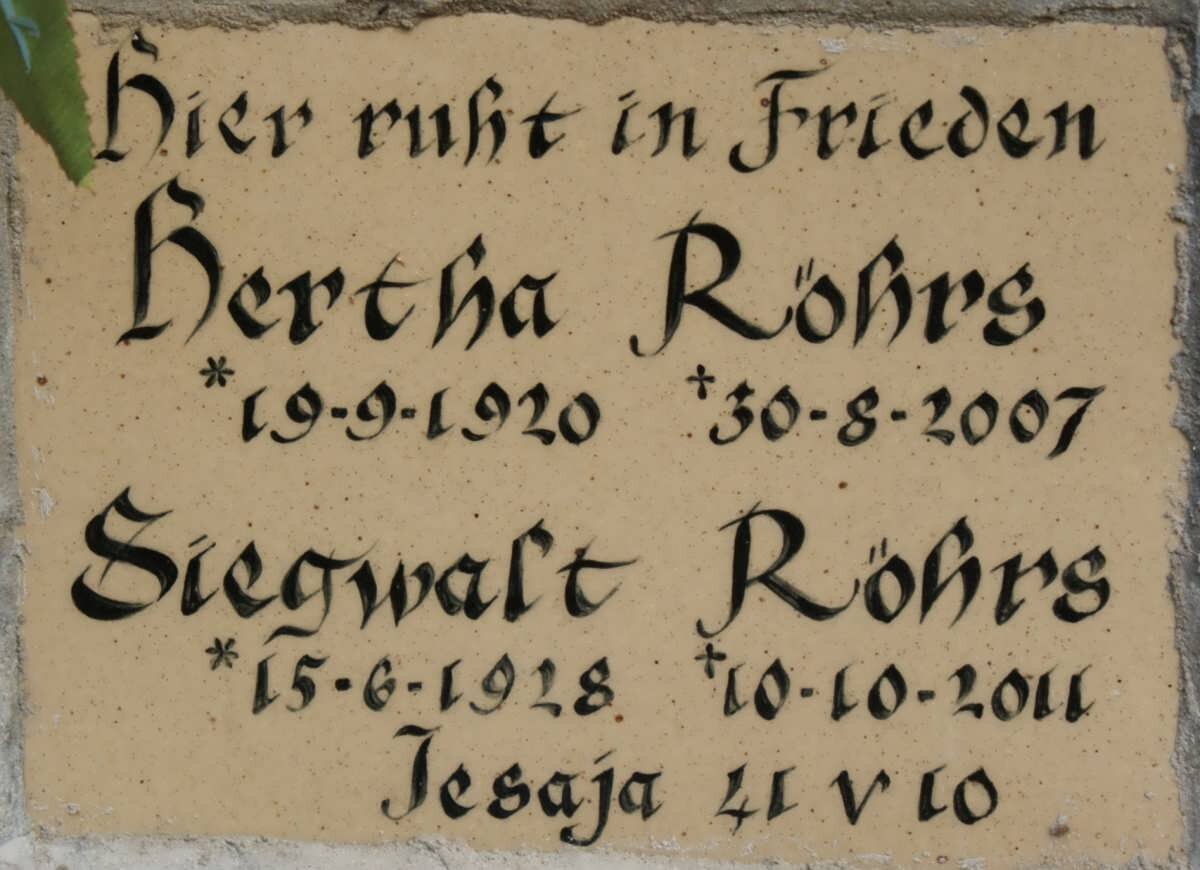 Hier ruht in Frieden
Hertha Röhrs
*19-9-1920 †30-8-2007
Siegwalt Röhrs
*15-6-1928 †10-10-2011
Jesaja 41 v 10